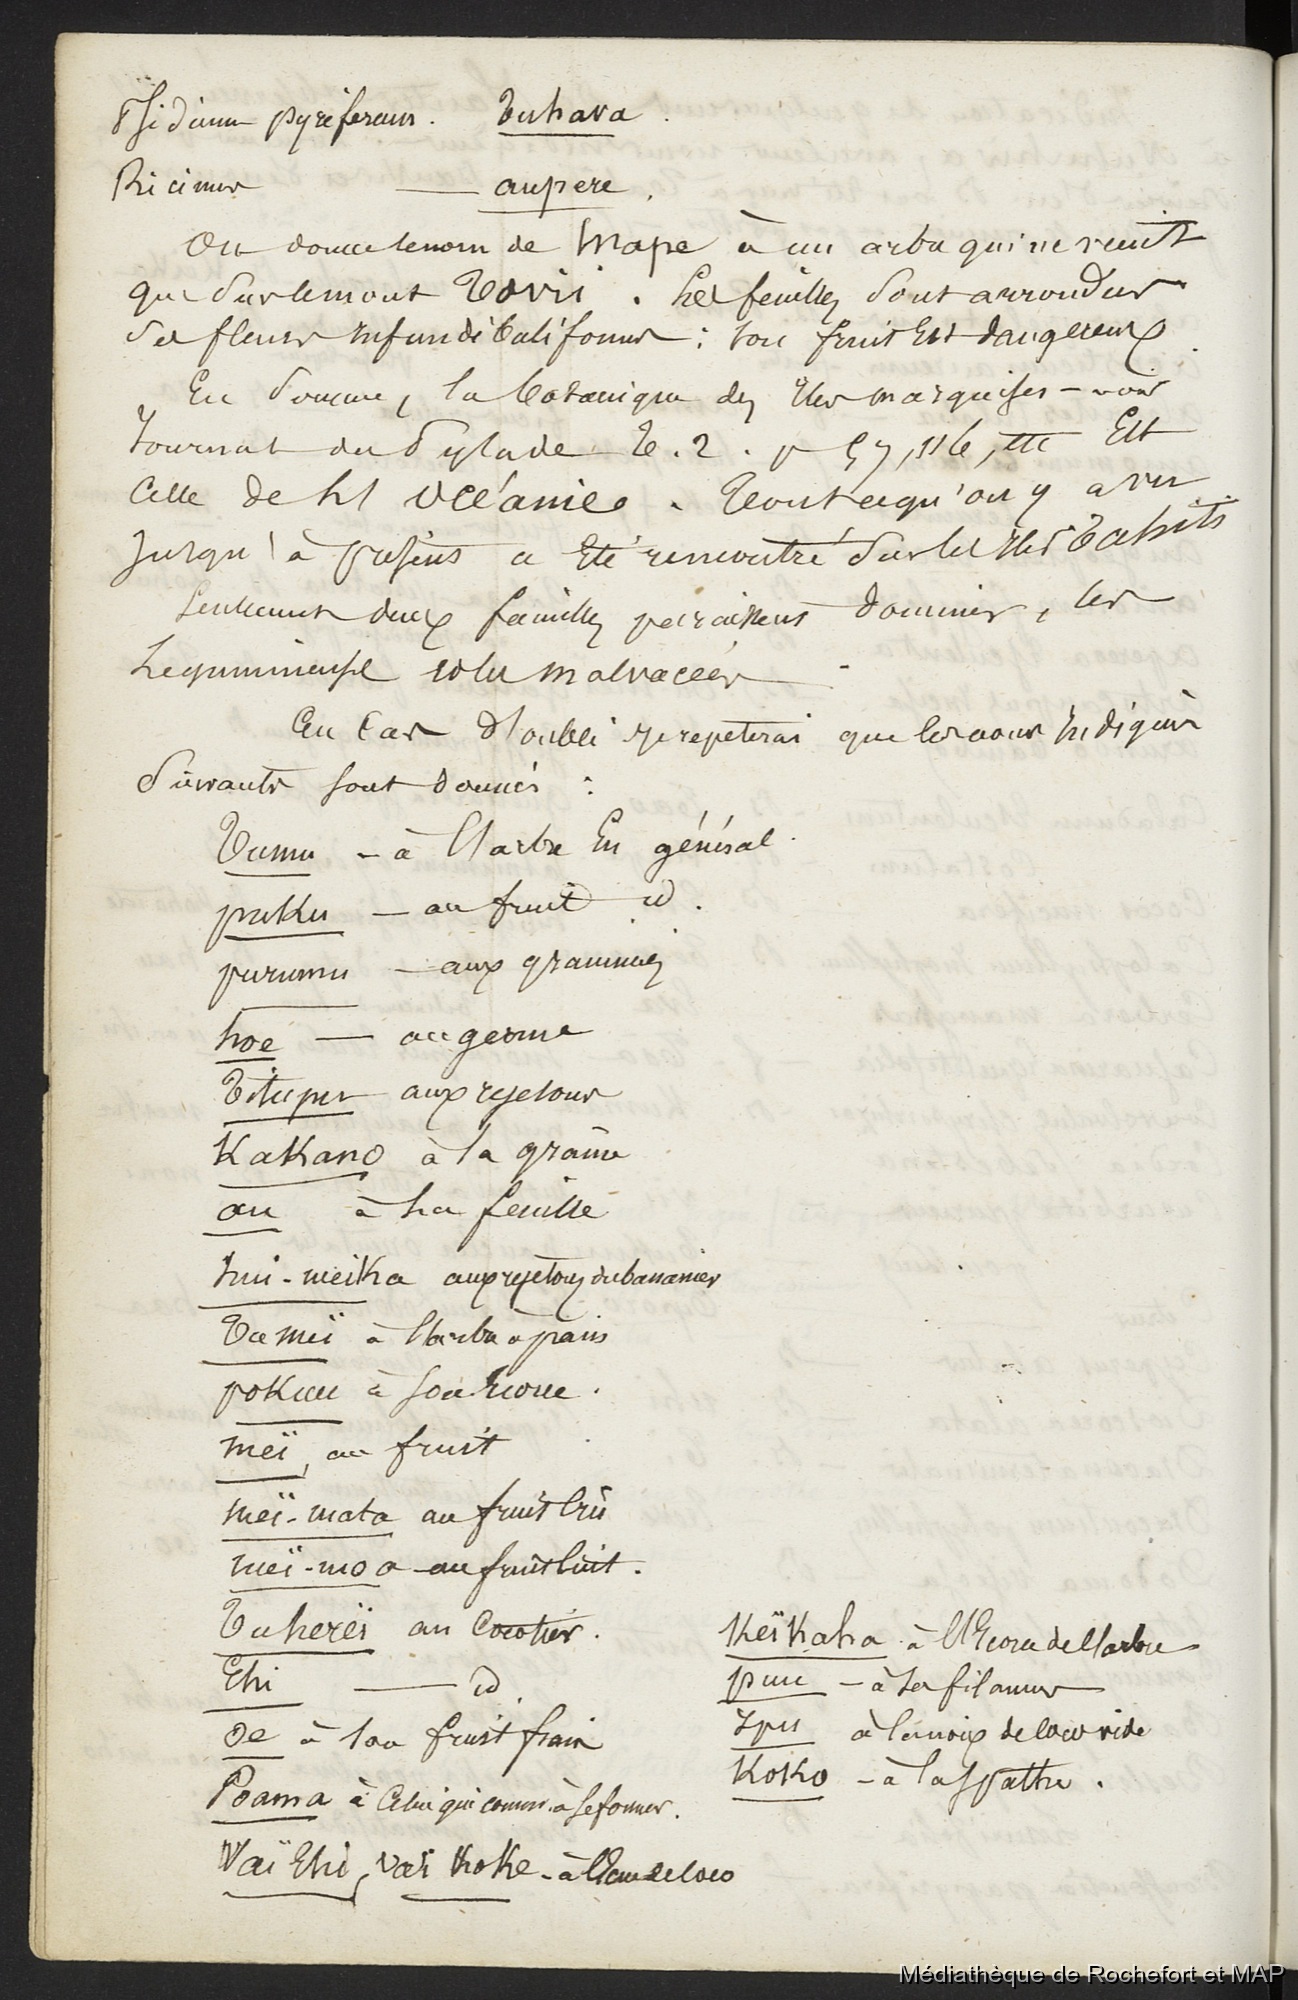 Psidium pyriferum. Tuhava.
Ricinus — aupere.
On donne le nom de Mape à un arbre qui ne vient
que sur le mont Tovii. Ses feuilles sont arrondies
ses fleurs infundibuliformes : son fruit Est dangereux.
En somme, la botanique des Iles marquises - voir
Journal du Pylade T. 2. p 57, 116, etc Est
Celle de Ll Océanie. Tout ce qu'on y a vu
Jusqu'à présent a Eté rencontré sur les Iles Tahiti
Seulement deux familles paraissent dominer, les
Legumineuses et les malvacées -
En Cas d'oubli je repeterai que les noms Indigènes
Suivants sont donnés :
Tumu - à l'arbre En général.
puku - au fruit id.
purumu - aux graminées
hoe - au germe
Titupu aux rejetons
Kakano à la graine
au à la feuille
hui-meika aux rejetons du bananier
Tumeï à l'arbre à pain
pokuu à son
meï, au fruit
meï-mata au fruit Crû
meï-moa au fruit Cuit.
Tuhereï au Cocotier.
Ehi — id.
oe à son fruit frais
Poama à Celui qui comm. à se former.
Vaï Ehi, vaï Koke - à l'Eau de Coco
Keïkaha à l'Ecorce de l'arbre
puu - à ses filamens
Ipu à la noix de coco vide
Koko - à la spathe.
Médiathèque de Rochefort et MAP